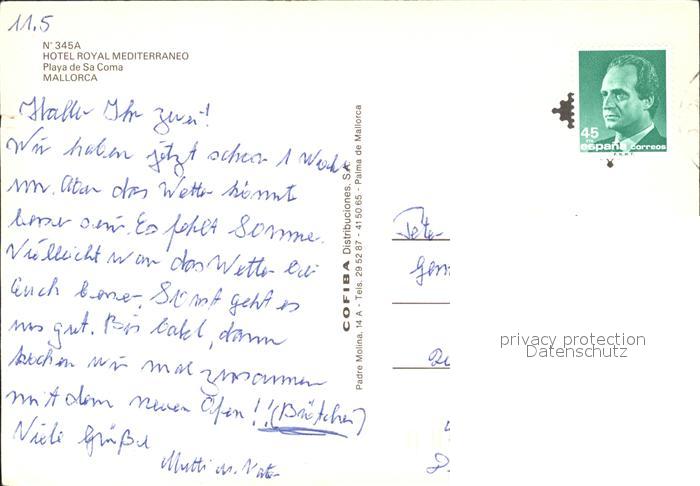 11.5
N° 345A
HOTEL ROYAL MEDITERRANEO
Playa de Sa Coma
MALLORCA
Hallo Ihr zwei!
Wir haben jetzt schon 1 Woche
um. Aber das Wetter könnte
besser sein. Es fehlt Sonne.
Vielleicht war das Wetter bei
Euch besser. Sonst geht es
uns gut. Bis bald, dann
kochen wir mal zusammen
mit dem neuen Ofen!! (Brötchen)
Viele Grüße
Mutti u. Vater
COFIBA Distribuciones, S.A.
Padre Molina, 14 A - Tels. 29 52 87 - 41 50 65 - Palma de Mallorca
45
españa correos
F.N.M.T.
Peter
privacy protection
Datenschutz